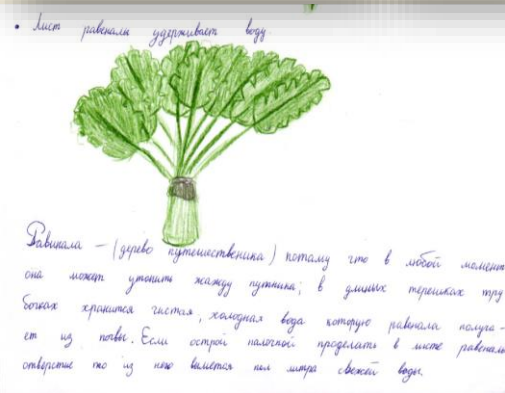 • Лист равеналы удерживает воду.
Равинала – (дерево путешественика) потаму что в любой момент
она может утолить жажду путника; в длиных терешках тру
бочках хранится чистая, холодная вода которую равенала получа-
ет из почвы. Если острой палочкой проделать в листе равеналы
отверстие то из него выльется пол литра свежей воды.